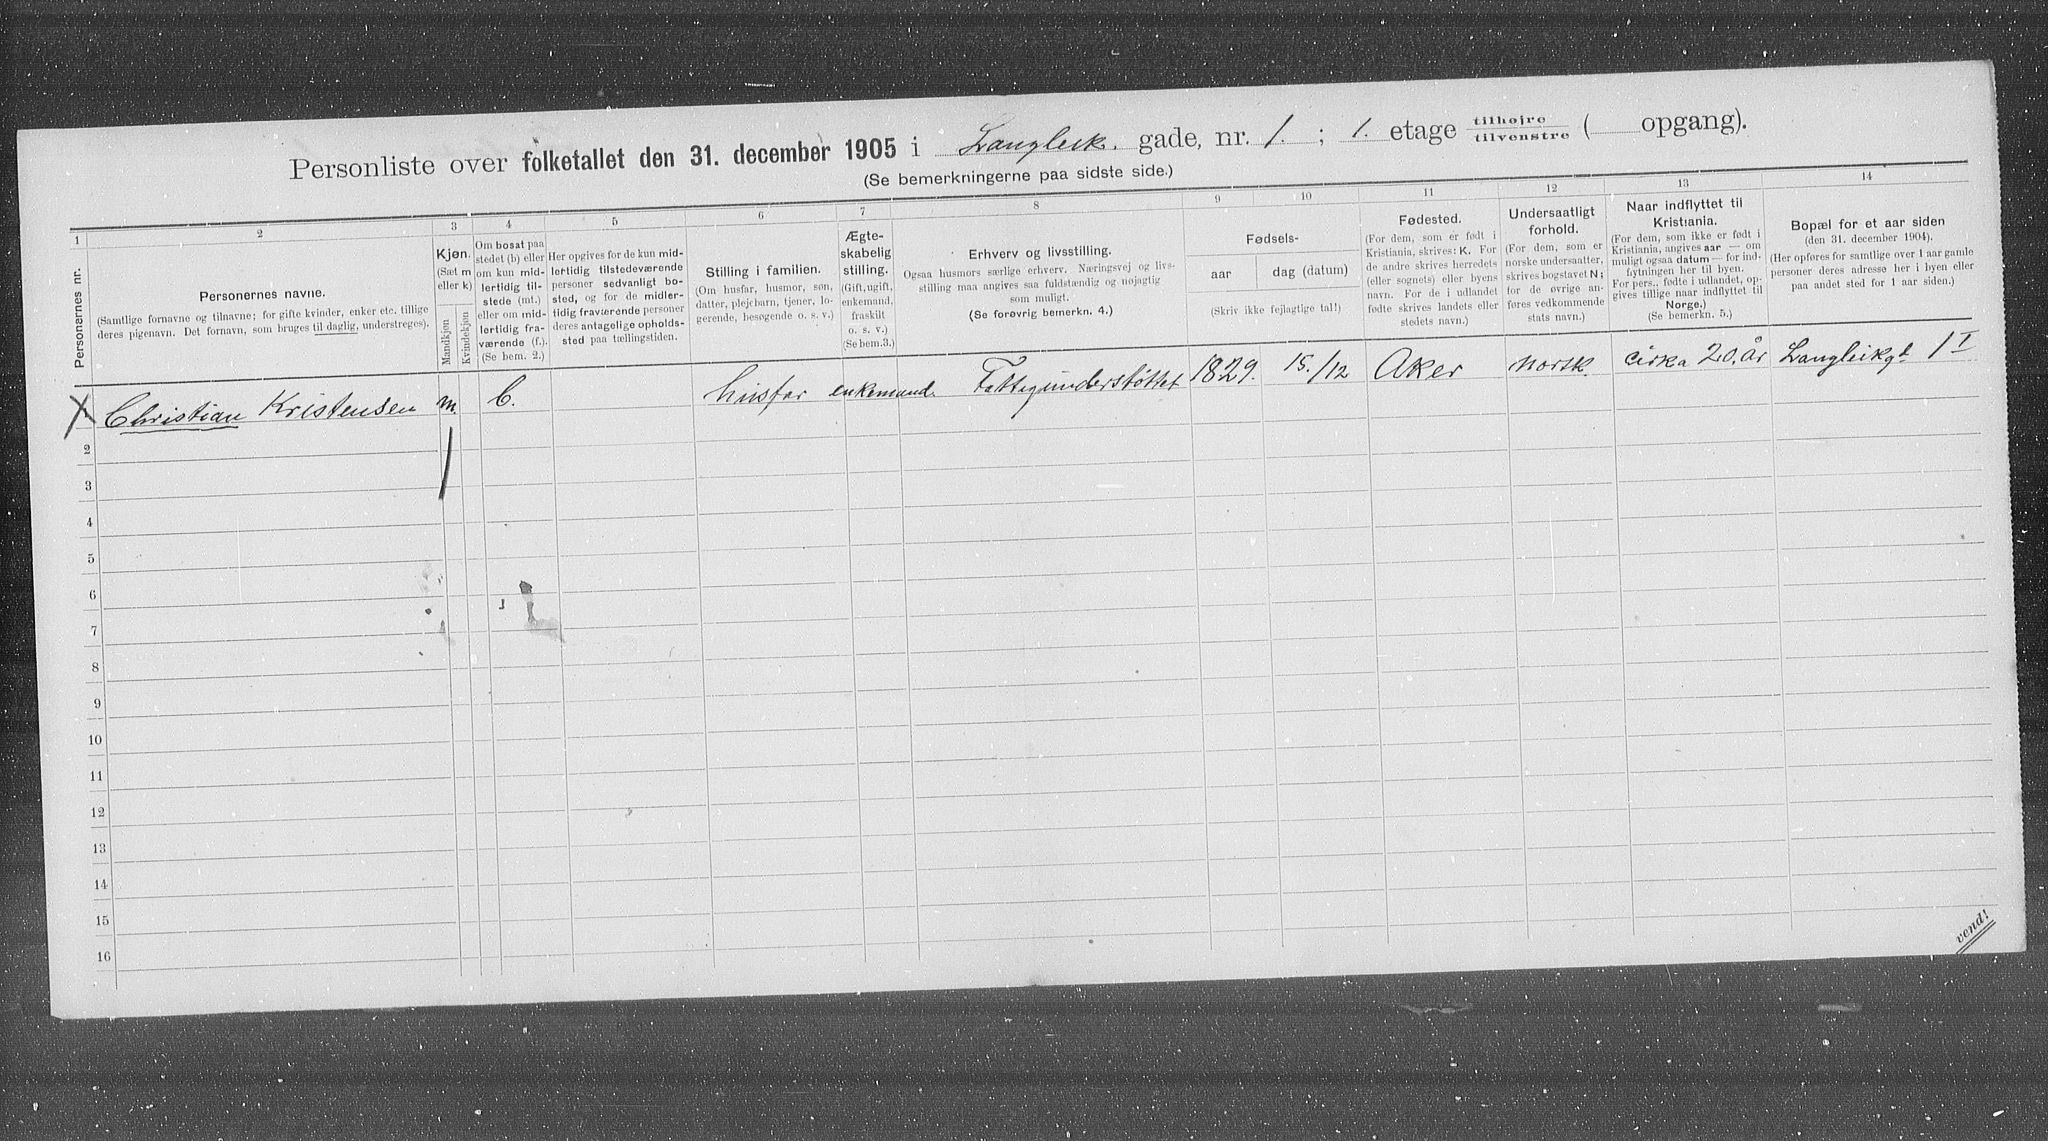 Personliste over folketallet den 31. december 1905 i Langleik. gade, nr. 1. ; 1. etage tilhøjre / tilvenstre ( opgang).
(Se bemerkningerne paa sidste side.)
1 2 3 4 5 6 7 8 9 10 11 12 13 14
Personernes nr.
Personernes navne.
(Samtlige fornavne og tilnavne; for gifte kvinder, enker etc. tillige
deres pigenavn. Det fornavn, som bruges til daglig, understreges).
Kjøn.
(Sæt m
eller k)
Mandkjøn
Kvindekjøn
Om bosat paa
stedet (b) eller
om kun mid-
lertidig til-
stede (mt.)
eller om mid-
lertidig fra-
værende (f.).
(Se bem. 2.)
Her opgives for de kun mid-
lertidig tilstedeværende
personer sedvanligt bo-
sted, og for de midler-
tidig fraværende personer
deres antagelige opholds-
sted paa tællingstiden.
Stilling i familien.
(Om husfar, husmor, søn,
datter, plejebarn, tjener, lo-
gerende, besøgende o. s. v.)
Ægte-
skabelig
stilling.
(Gift, ugift,
enkemand,
fraskilt
o. s. v.)
(Se bem.3.)
Erhverv og livsstilling.
Ogsaa husmors særlige erhverv. Næringsvej og livs-
stilling maa angives saa fuldstændig og nøjagtig
som muligt.
(Se forøvrig bemerkn. 4.)
Fødsels-
aar dag (datum)
(Skriv ikke fejlagtige tal!)
Fødested.
(For dem, som er født i
Kristiania, skrives: K. For
de andre skrives herredets
(eller sognets) eller byens
navn. For de i udlandet
fødte skrives landets eller
stedets navn.)
Undersaatligt
forhold.
(For dem, som er
norske undersaatter,
skrives bogstavet N;
for de øvrige an-
føres vedkommende
stats navn.)
Naar indflyttet til
Kristiania.
(For dem, som ikke er født i
Kristiania, angives aar — om
muligt ogsaa datum — for ind-
flytningen her til byen.
For pers., fødte i udlandet, op-
gives tillige naar indflyttet til
Norge.)
(Se bemerkn. 5.)
Bopæl for et aar siden
(den 31. december 1904).
(Her opføres for samtlige over 1 aar gamle
personer deres adresse her i byen eller
paa andet sted for 1 aar siden.)
Christian Kristensen m. b. husfar enkemand. Fattigunderstöttet 1829. 15./12 Aker norsk. cirka 20. år Langleikgt 1 I
2
3
4
5
6
7
8
9
10
11
12
13
14
15
16
vend!